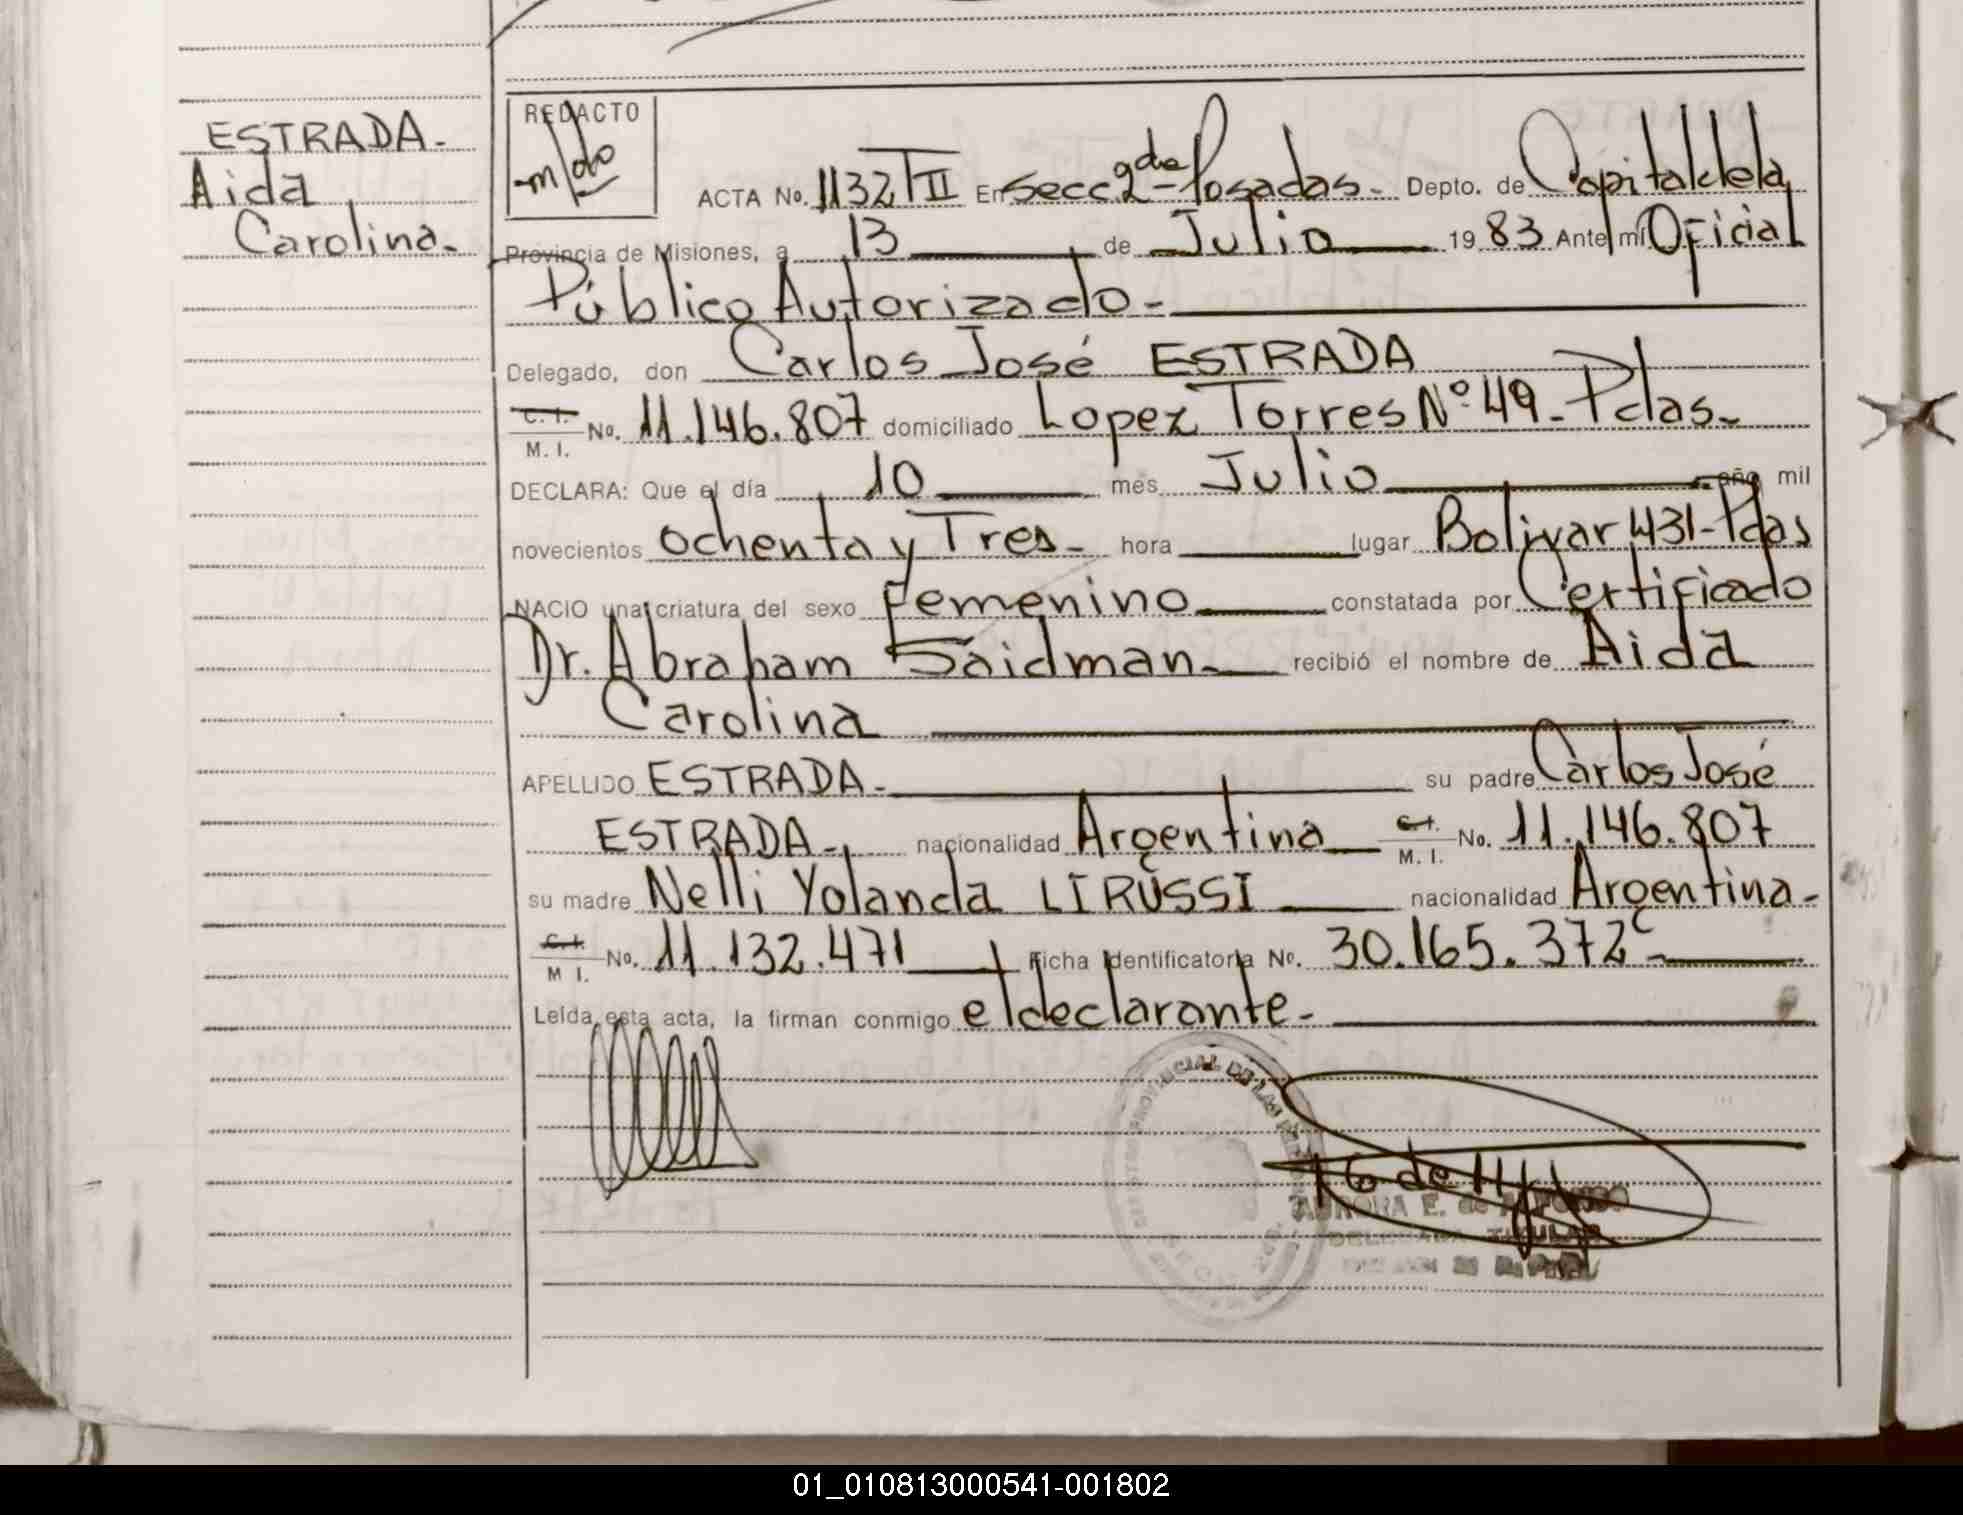 ESTRADA-
Aida
Carolina-
REDACTO
ACTA No. 1132 TII En Secc. 2da- Posadas- Depto. de Capital de la
Provincia de Misiones, a 13 de Julio 19 83 Ante mí Oficial
Público Autorizado-
Delegado, don Carlos José ESTRADA
C. I.
M. I. No. 11.146.807 domiciliado Lopez Torres Nº 49- Pdas-
DECLARA: Que el día 10 mes Julio año mil
novecientos ochenta y Tres- hora lugar Bolivar 431- Pdas
NACIO una criatura del sexo Femenino constatada por Certificado
Dr. Abraham Saidman- recibió el nombre de Aida
Carolina
APELLIDO ESTRADA- su padre Carlos José
ESTRADA- nacionalidad Argentina C.I. M. I. No. 11.146.807
su madre Nelli Yolanda LIRUSSI nacionalidad Argentina-
C.I. M I. No. 11.132.471 Ficha Identificatoria No. 30.165.372-
Leída esta acta, la firman conmigo el declarante-
AURORA E. de
DELEGADA TITULAR
01_010813000541-001802